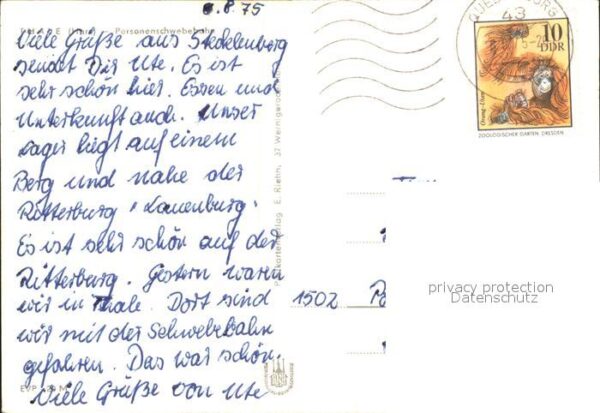 6.8.75
THALE (Harz) Personenschwebebahn
Viele Grüße aus Stecklenberg
sendet Dir Ute. Es ist
sehr schön hier. Essen und
Unterkunft auch. Unser
Lager liegt auf einem
Berg und nahe der
Ritterburg "Lauenburg".
Es ist sehr schön auf der
Ritterburg. Gestern waren
wir in Thale. Dort sind
wir mit der Schwebebahn
gefahren. Das war schön.
Viele Grüße von Ute
E. Riehn, 37 Wernigerode
QUEDLINBURG
43
10
DDR
Orang-Utan
ZOOLOGISCHER GARTEN, DRESDEN
1502 Po
privacy protection
Datenschutz